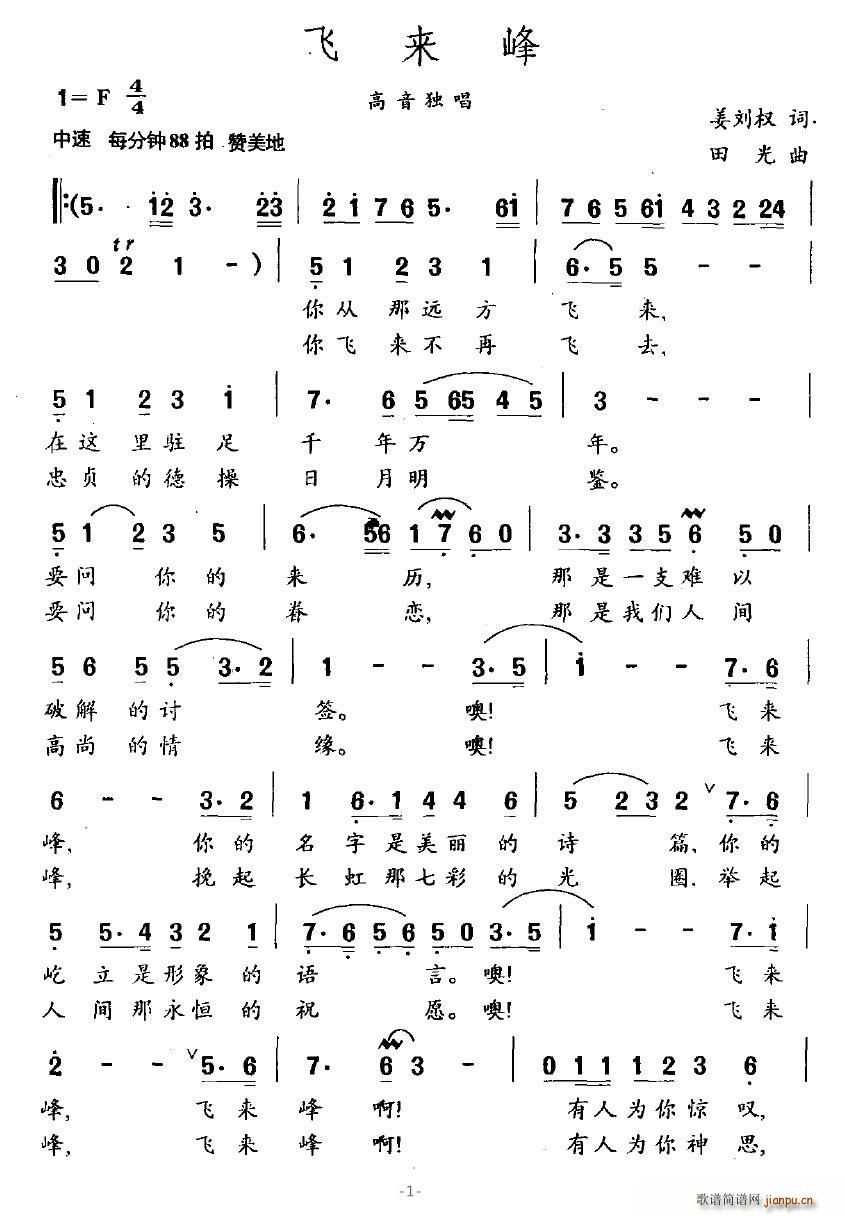 飞来峰
1=F 4/4
高音独唱
姜刘权 词.
中速 每分钟88拍 赞美地
田光曲
‖:(5· i2 3· 23 | 2i 76 5· 6i | 76 56i 43 2 24 |
30 tr 2 1 -) | 5 1 2 3 1 | 6·5 5 - - |
你从那远方 飞来,
你飞来不再 飞去,
5 1 2 3 i | 7· 6 5 65 4 5 | 3 - - - |
在这里驻足 千年万 年。
忠贞的德操 日月明 鉴。
5 1 2 3 5 | 6· 56 1 7 6 0 | 3·3 3 5 6 5 0 |
要问你的 来历, 那是一支难以
要问你的 眷恋, 那是我们人间
5 6 5 5 3·2 | 1 - - 3·5 | i - - 7·6 |
破解的讨 签。 噢! 飞来
高尚的情 缘。 噢! 飞来
6 - - 3·2 | 1 6·1 4 4 6 | 5 2 3 2 ∨ 7·6 |
峰, 你的 名字是美丽的 诗篇,你的
峰, 挽起 长虹那七彩的 光圈.举起
5 5·4 3 2 1 | 7·6 5 6 5 0 3·5 | i - - 7·i |
屹立是形象的 语言。噢! 飞来
人间那永恒的 祝愿。噢! 飞来
2 - - ∨ 5·6 | 7· 6 3 - | 0 1 1 1 1 2 3 6 |
峰, 飞来 峰啊! 有人为你惊叹,
峰, 飞来 峰啊! 有人为你神思,
-1-
歌谱简谱网
jianpu.cn